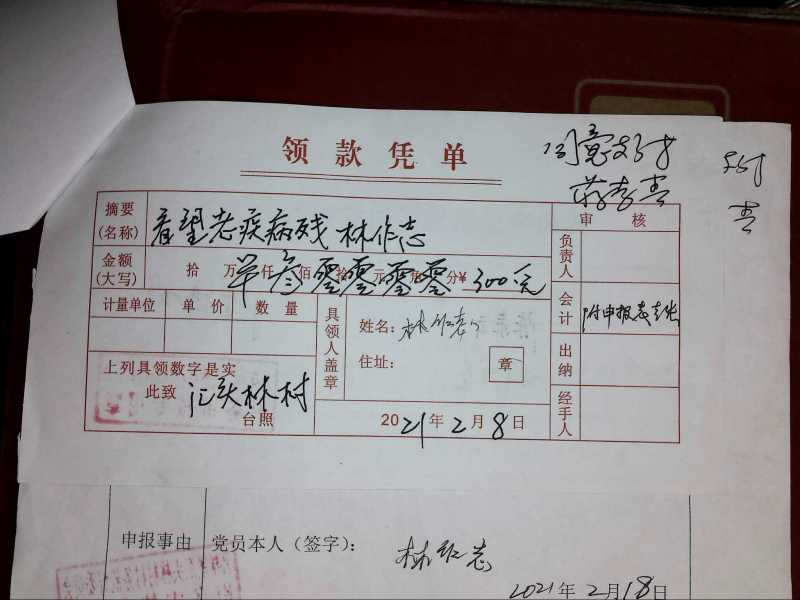 领款凭单
同意支付
蒋孝青
摘要(名称) 看望老疾病残 林作志
审核
金额(大写) 拾万仟佰拾元角分¥ 单叁零零零零 300元
负责人
计量单位 单价 数量
具领人盖章
姓名: 林作志
会计 附申报表支张
住址: 章
出纳
上列具领数字是实
此致 汇头林村
台照
2021年2月8日
经手人
申报事由 党员本人(签字): 林作志
2021年2月18日